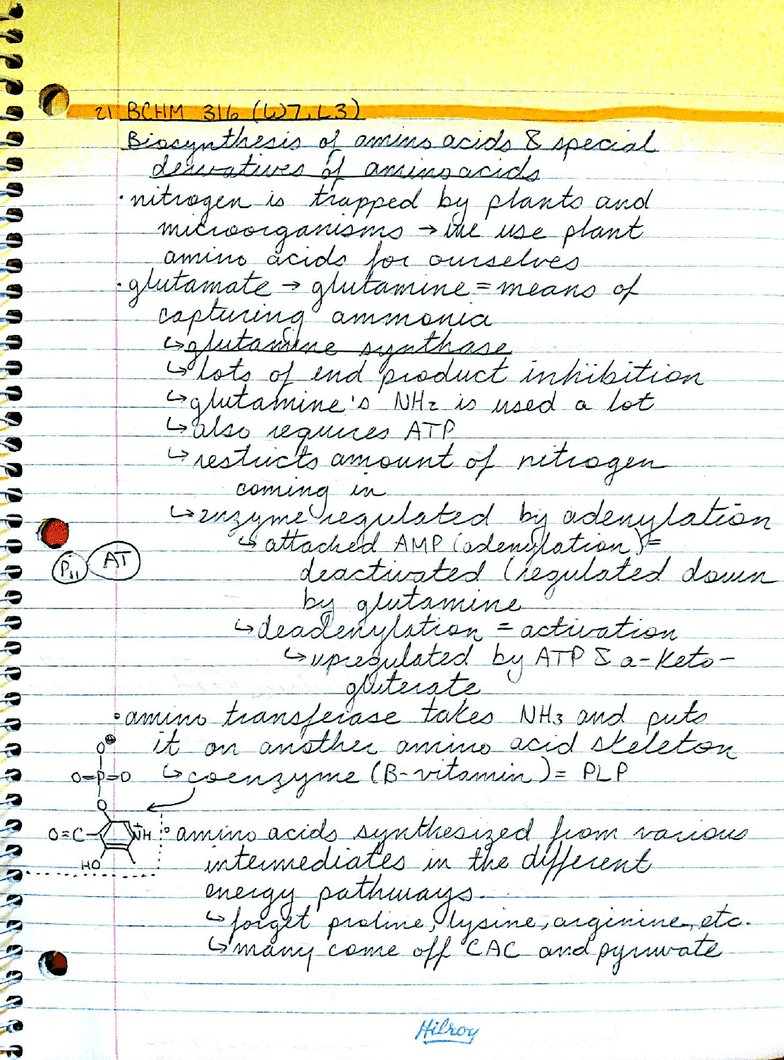 21 BCHM 316 (W7, L3)
Biosynthesis of amino acids & special
derivatives of amino acids
• nitrogen is trapped by plants and
microorganisms → we use plant
amino acids for ourselves
• glutamate → glutamine = means of
capturing ammonia
↳ glutamine synthase
↳ lots of end product inhibition
↳ glutamine's NH2 is used a lot
↳ also requires ATP
↳ restricts amount of nitrogen
coming in
↳ enzyme regulated by adenylation
↳ attached AMP (adenylation) =
PII AT
deactivated (regulated down
by glutamine
↳ deadenylation = activation
↳ upregulated by ATP & a-keto-
gluterate
• amino transferase takes NH3 and puts
it on another amino acid skeleton
↳ coenzyme (B-vitamin) = PLP
O⊖
O=P=O
O
O=C
+NH
HO
• amino acids synthesized from various
intermediates in the different
energy pathways.
↳ forget proline, lysine, arginine, etc.
↳ many come off CAC and pyruvate
Hilroy